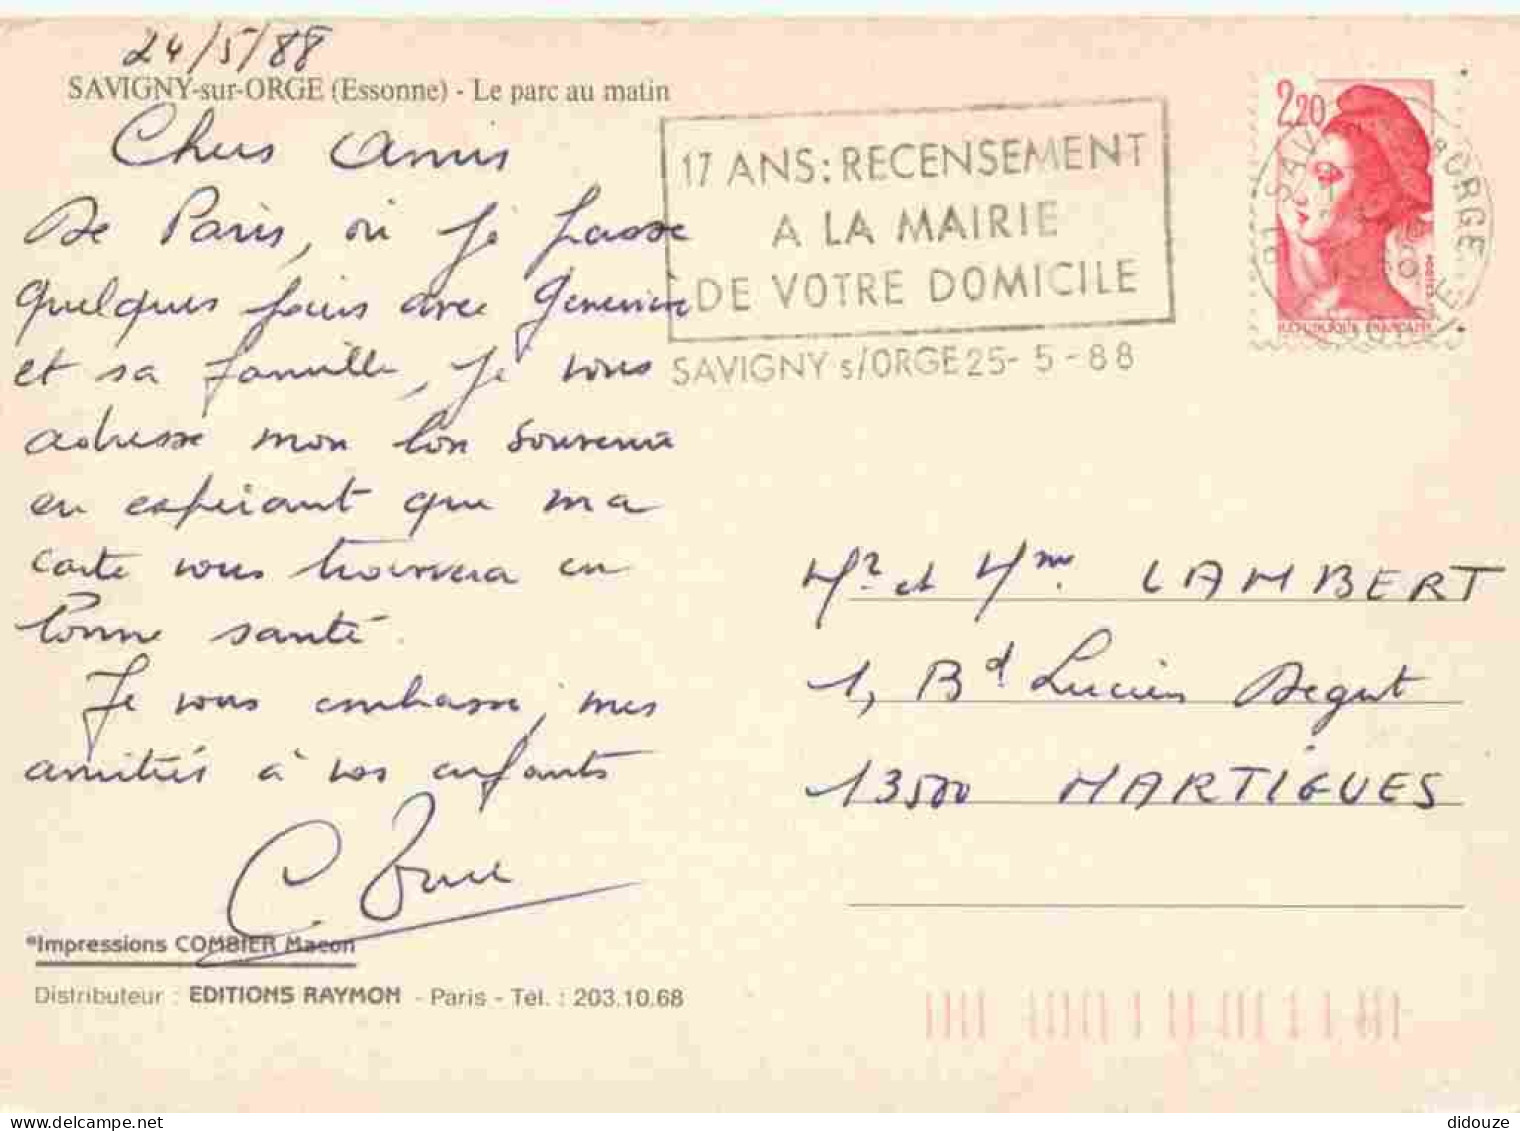 24/5/88
SAVIGNY-sur-ORGE (Essonne) - Le parc au matin
Chers amis
De Paris, où je passe
quelques jours avec Geneviève
et sa famille, je vous
adresse mon bon souvenir
en espérant que ma
carte vous trouvera en
bonne santé.
Je vous embrasse, mes
amitiés à vos enfants
C.
*Impressions COMBIER Macon
Distributeur : EDITIONS RAYMON - Paris - Tél. : 203.10.68
17 ANS: RECENSEMENT
A LA MAIRIE
DE VOTRE DOMICILE
SAVIGNY s/ORGE 25-5-88
2,20
REPUBLIQUE FRANÇAISE
91 SAVIGNY S ORGE
ESSONNE
Mr et Mme LAMBERT
1, Bd Lucien Degut
13500 MARTIGUES
didouze